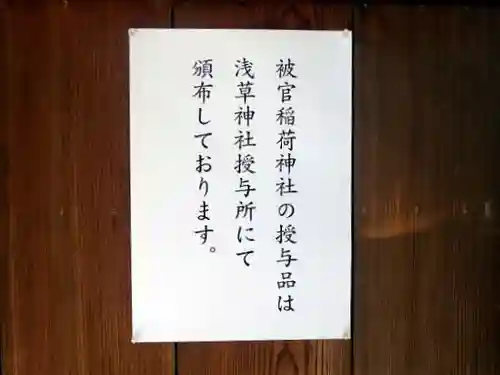 被官稲荷神社の授与品は
浅草神社授与所にて
頒布しております。